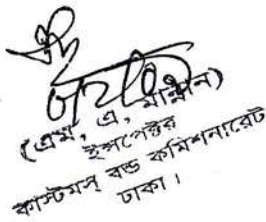 (এম, এ, মান্নান)
ইন্সপেক্টর
কাস্টমস্ বন্ড কমিশনারেট
ঢাকা।